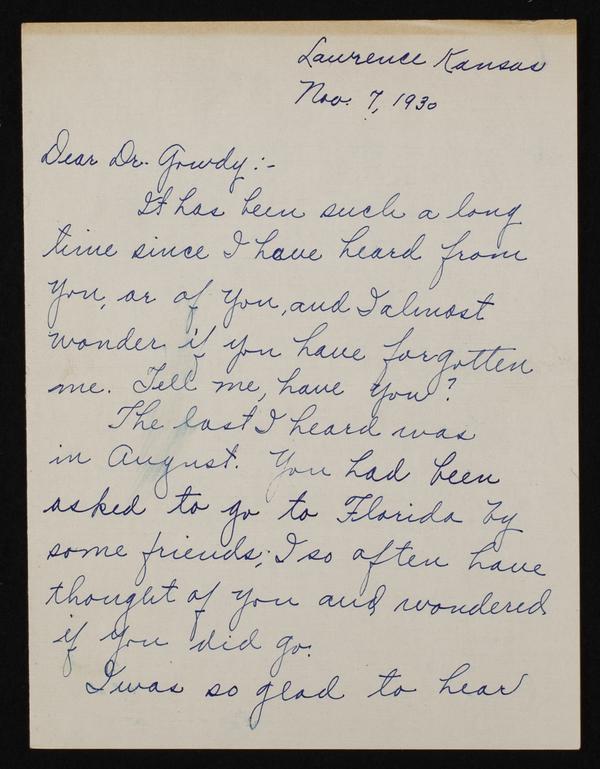 Lawrence Kansas
Nov. 7, 1930
Dear Dr. Gowdy:-
It has been such a long
time since I have heard from
you, or of you, and I almost
wonder if you have forgotten
me. Tell me, have you?
The last I heard was
in August. You had been
asked to go to Florida by
some friends; I so often have
thought of you and wondered
if you did go.
I was so glad to hear